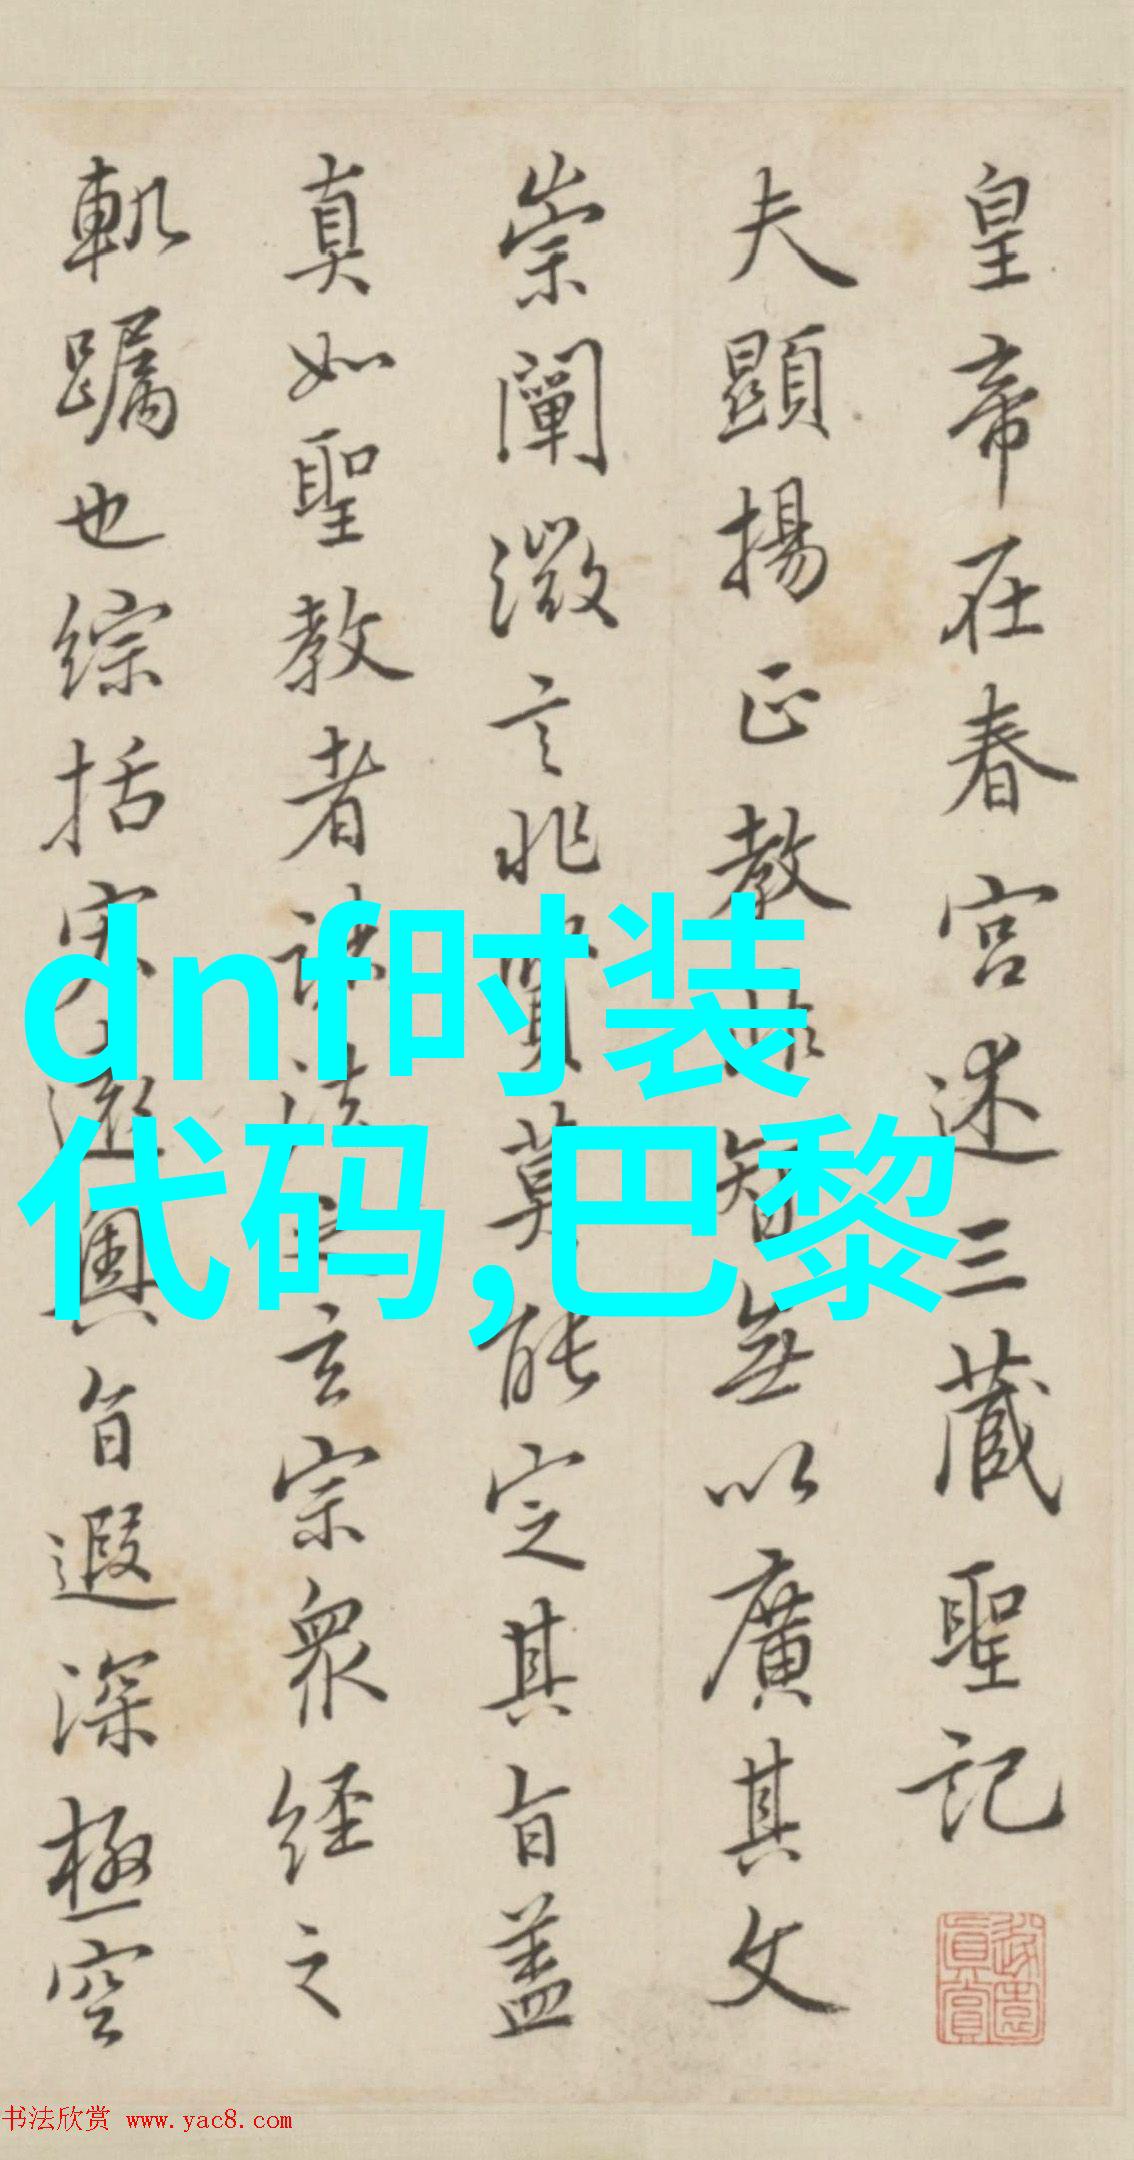 皇帝在春宮述三藏聖記
夫顯揚正教智無以廣其文
崇闡微言非賢莫能定其旨蓋
真如聖教者諸法之玄宗眾經之
軌躅也綜括宏遠奧旨遐深極空
dnf时装
代码,巴黎
书法欣赏 www.yac8.com